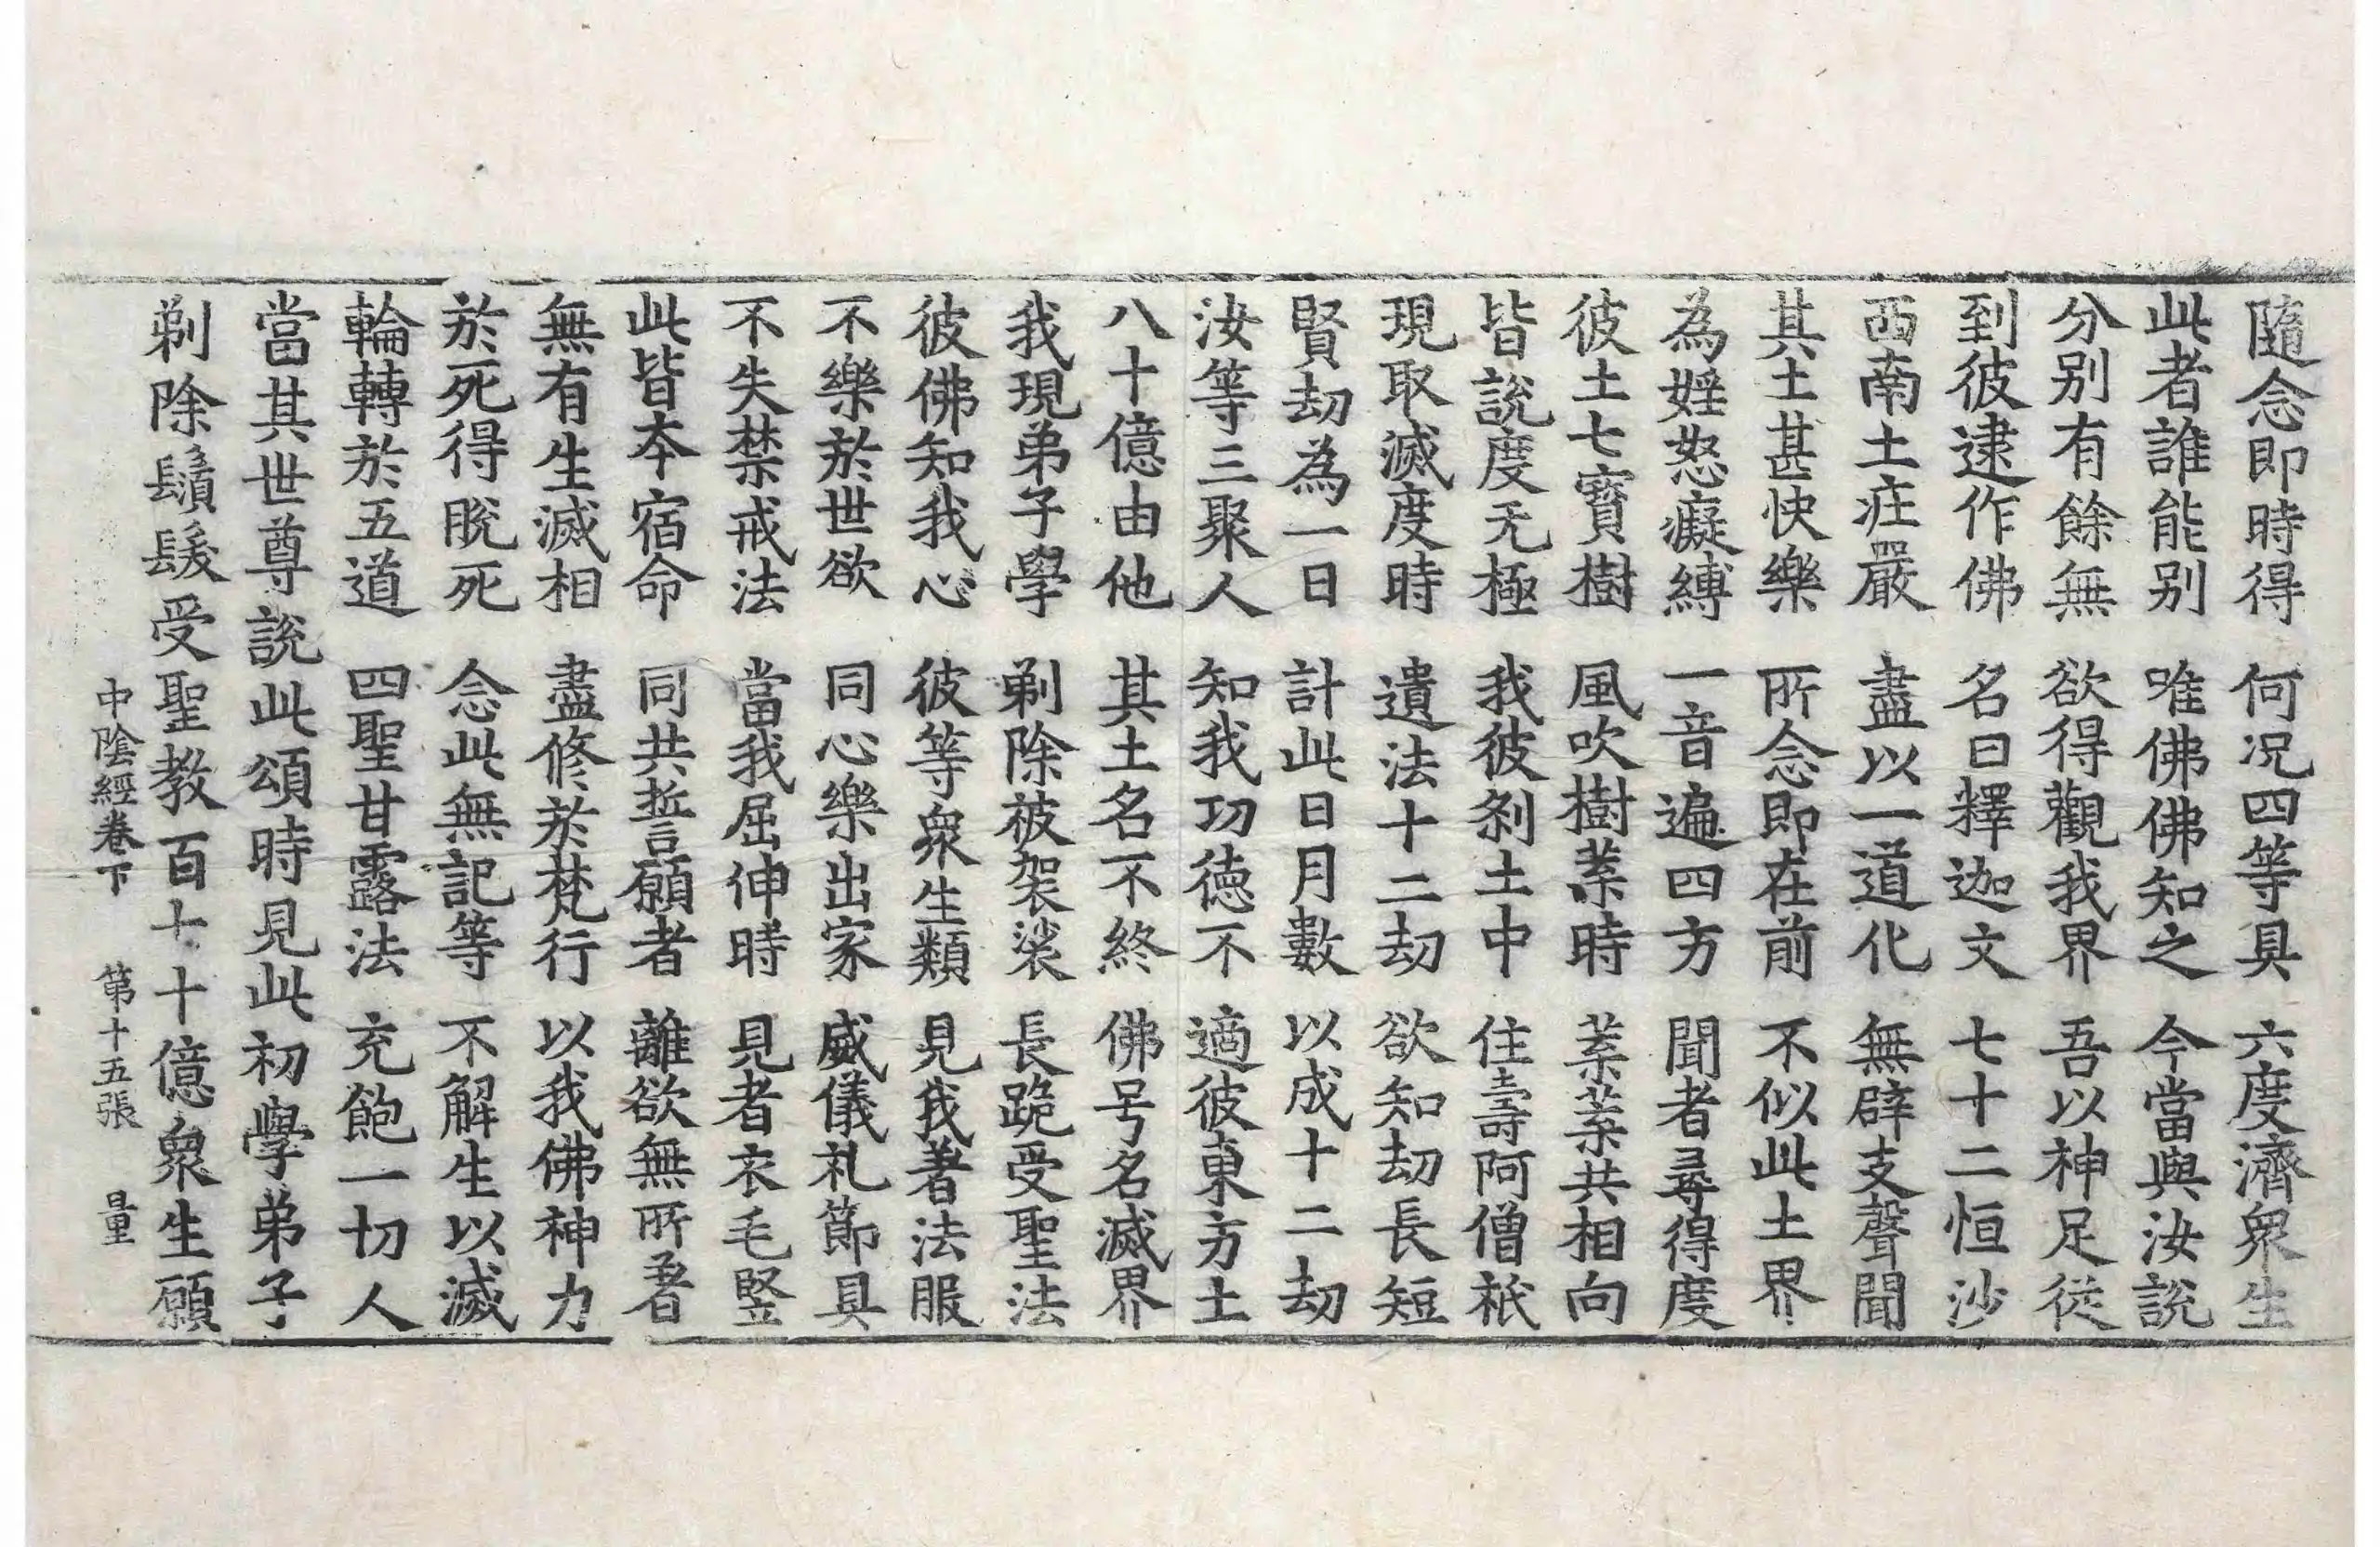 隨念即時得　何况四等具　六度濟衆生
此者誰能别　唯佛佛知之　今當與汝説
分别有餘無　欲得觀我界　吾以神足從
到彼逮作佛　名曰釋迦文　七十二恒沙
西南土庄嚴　盡以一道化　無辟支聲聞
其土甚快樂　所念即在前　不似此土界
為婬怒癡縛　一音遍四方　聞者尋得度
彼土七寳樹　風吹樹葉時　葉葉共相向
皆説度无極　我彼刹土中　住壽阿僧祇
現取滅度時　遺法十二劫　欲知劫長短
賢劫為一日　計此日月數　以成十二劫
汝等三聚人　知我功徳不　適彼東方土
八十億由他　其土名不終　佛号名滅界
我現弟子學　剃除被袈裟　長跪受聖法
彼佛知我心　彼等衆生類　見我著法服
不樂於世欲　同心樂出家　威儀礼節具
不失禁戒法　當我屈伸時　見者衣毛竪
此皆本宿命　同共誓願者　離欲無所著
無有生滅相　盡修於梵行　以我佛神力
於死得脱死　念此無記等　不解生以滅
輪轉於五道　四聖甘露法　充飽一切人
當其世尊説此頌時見此初學弟子
剃除鬚髮受聖教百七十億衆生願
中陰經卷下　第十五張　量